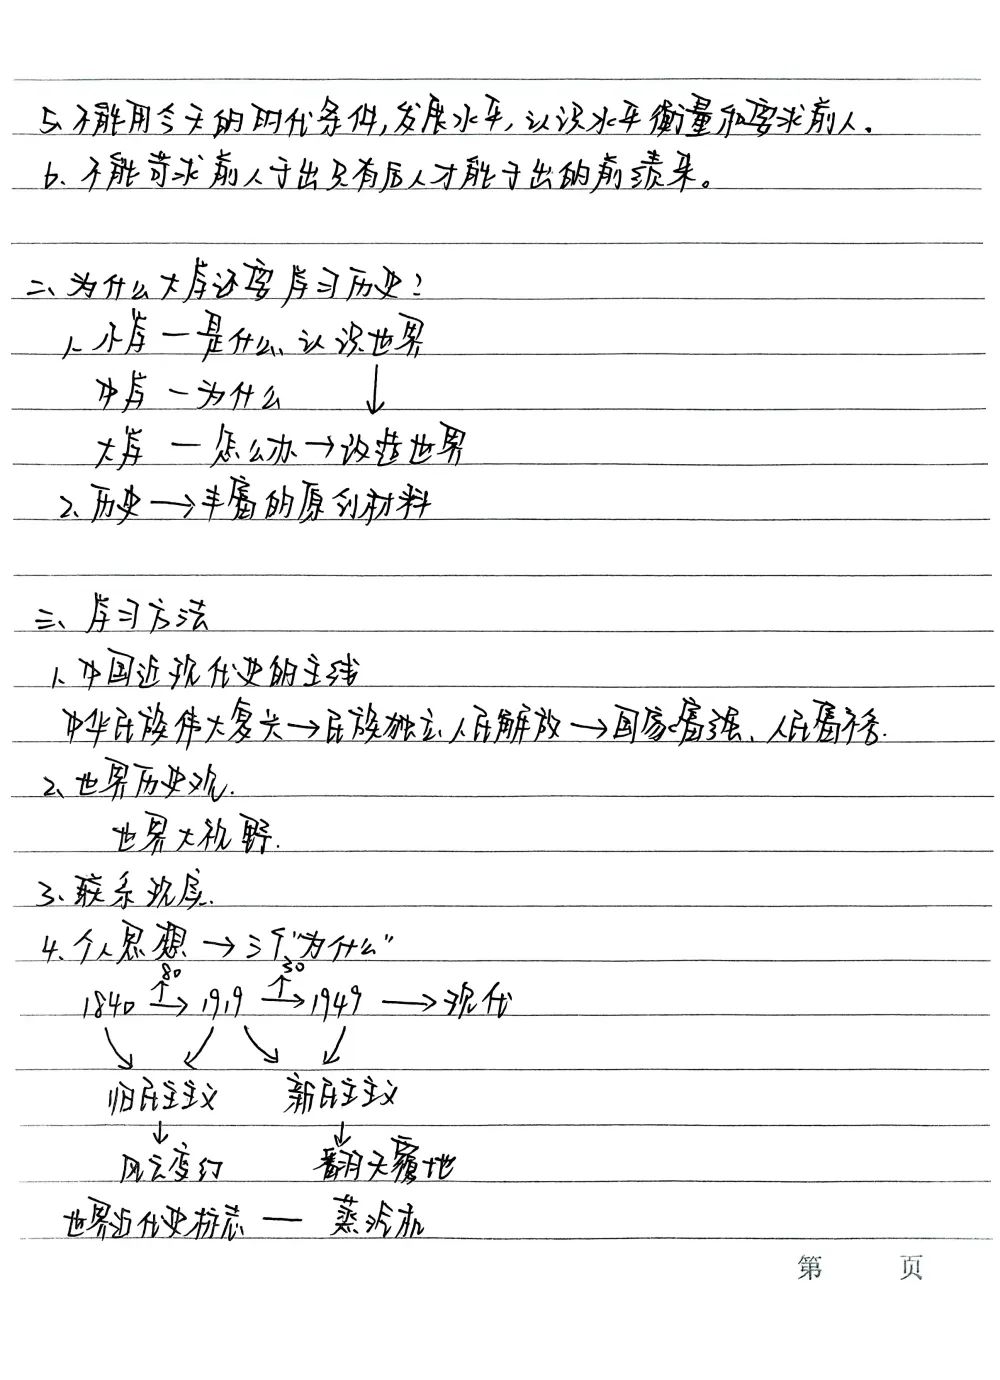 5、不能用今天的时代条件,发展水平,认识水平衡量和要求前人.
6、不能苛求前人干出只有后人才能干出的前绩来。
二、为什么大学还要学习历史?
1、小学一是什么、认识世界
中学一为什么
↓
大学一怎么办→改造世界
2、历史→丰富的原创材料
三、学习方法
1、中国近现代史的主线
中华民族伟大复兴→民族独立、人民解放→国家富强、人民富裕.
2、世界历史观.
世界大视野.
3、联系现实.
4、个人思想→三个"为什么"
80 30
1840 → 1919 → 1949 → 现代
旧民主主义 新民主主义
↓ ↓
风云变幻 翻天覆地
世界近代史标志一蒸汽机
第 页